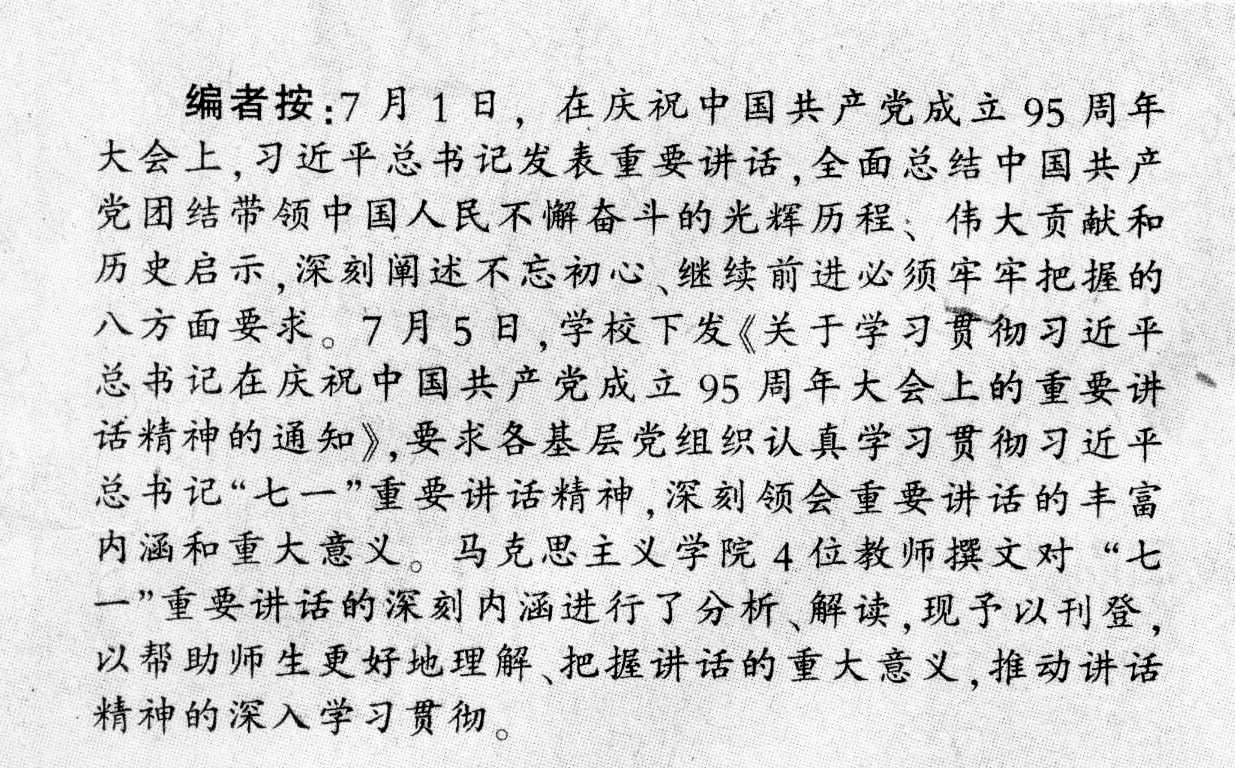 编者按:7月1日，在庆祝中国共产党成立95周年
大会上,习近平总书记发表重要讲话,全面总结中国共产
党团结带领中国人民不懈奋斗的光辉历程、伟大贡献和
历史启示,深刻阐述不忘初心、继续前进必须牢牢把握的
八方面要求。7月5日,学校下发《关于学习贯彻习近平
总书记在庆祝中国共产党成立95周年大会上的重要讲
话精神的通知》,要求各基层党组织认真学习贯彻习近平
总书记“七一”重要讲话精神,深刻领会重要讲话的丰富
内涵和重大意义。马克思主义学院4位教师撰文对“七
一”重要讲话的深刻内涵进行了分析、解读,现予以刊登,
以帮助师生更好地理解、把握讲话的重大意义,推动讲话
精神的深入学习贯彻。